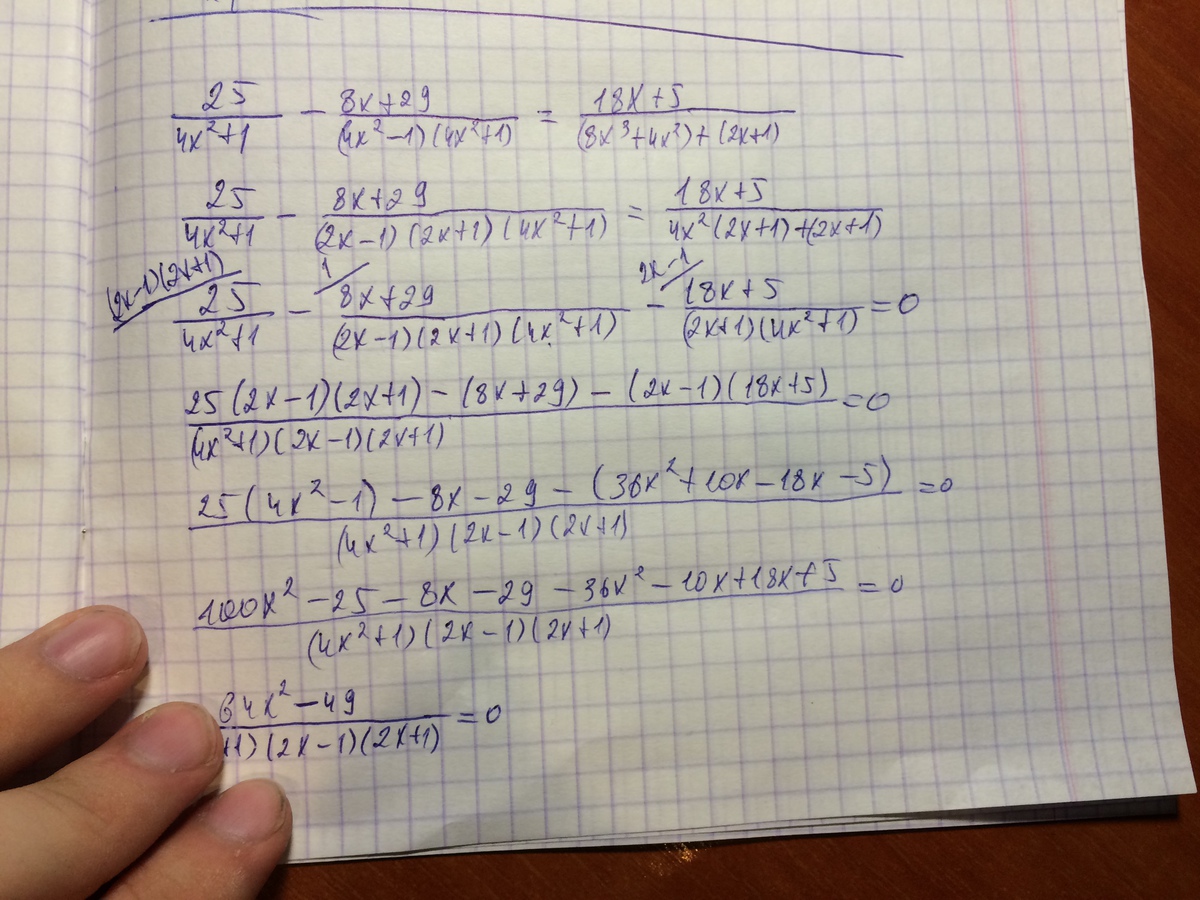 25/(4x²+1) − (8x+29)/((4x²−1)(4x²+1)) = (18x+5)/((8x³+4x²)+(2x+1))
25/(4x²+1) − (8x+29)/((2x−1)(2x+1)(4x²+1)) = (18x+5)/(4x²(2x+1)+(2x+1))
(2x−1)(2x+1) 1 2x−1
25/(4x²+1) − (8x+29)/((2x−1)(2x+1)(4x²+1)) − (18x+5)/((2x+1)(4x²+1)) = 0
(25(2x−1)(2x+1)−(8x+29)−(2x−1)(18x+5))/((4x²+1)(2x−1)(2x+1)) = 0
(25(4x²−1)−8x−29−(36x²+10x−18x−5))/((4x²+1)(2x−1)(2x+1)) = 0
(100x²−25−8x−29−36x²−10x+18x+5)/((4x²+1)(2x−1)(2x+1)) = 0
(64x²−49)/(+1)(2x−1)(2x+1) = 0